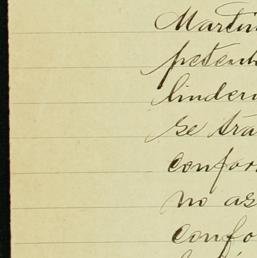 Martin
petent
linder
se tra
confor
no as
confo